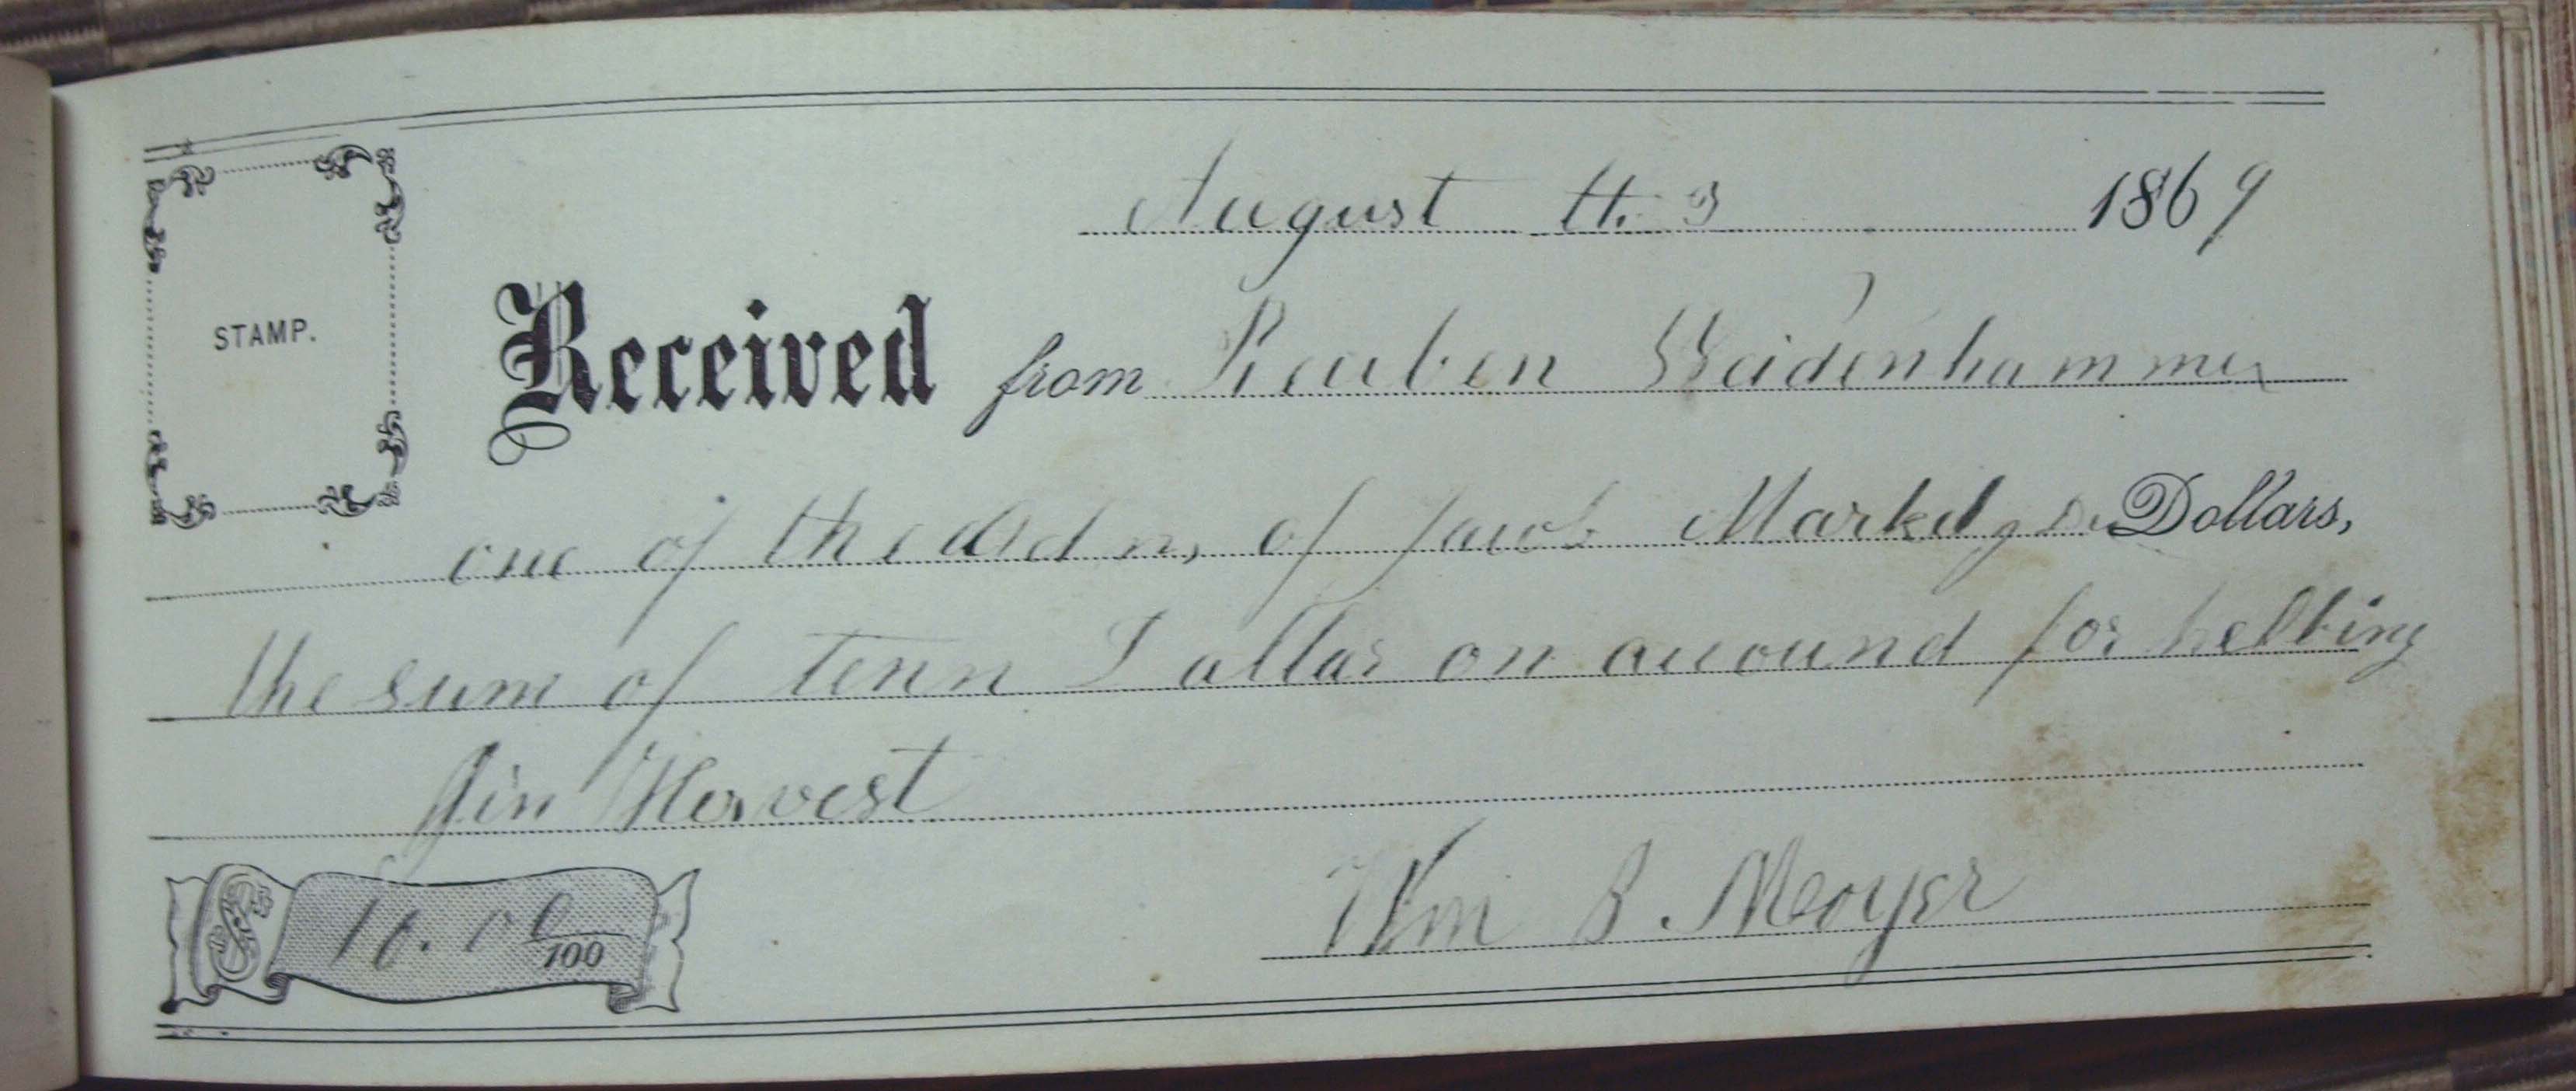 August th. 3 1869
STAMP.
Received from Reuben Weidenhammer
one of the of Jacob Dollars,
the sum of tenn Dollar on accound for helbing
in Harvest
$ 10.00/100
Wm B. Meoyer